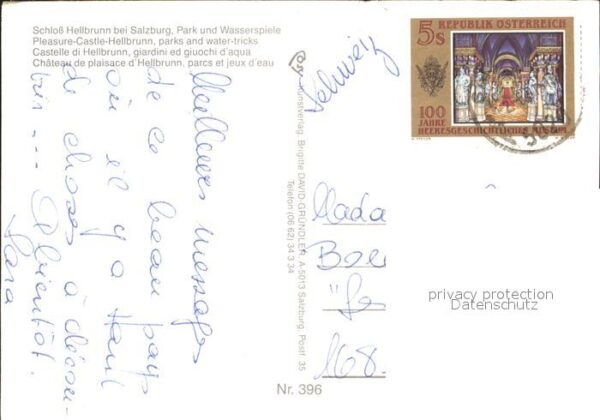 Schloß Hellbrunn bei Salzburg, Park und Wasserspiele
Pleasure-Castle-Hellbrunn, parks and water-tricks
Castelle di Hellbrunn, giardini ed giuochi d'aqua
Château de plaisace d'Hellbrunn, parcs et jeux d'eau
Meilleurs messages
de ce beau pays
où il y a tant
de choses à décou-
vrir ... A bientôt.
Sara
Kunstverlag, Brigitte DAVID-GRÜNDLER, A-5013 Salzburg, Postf. 35
Telefon (06 62) 34 3 34
Nr. 396
Schweiz
5s
REPUBLIK ÖSTERREICH
100
JAHRE
HEERESGESCHICHTLICHES MUSEUM
Mada
168
privacy protection
Datenschutz